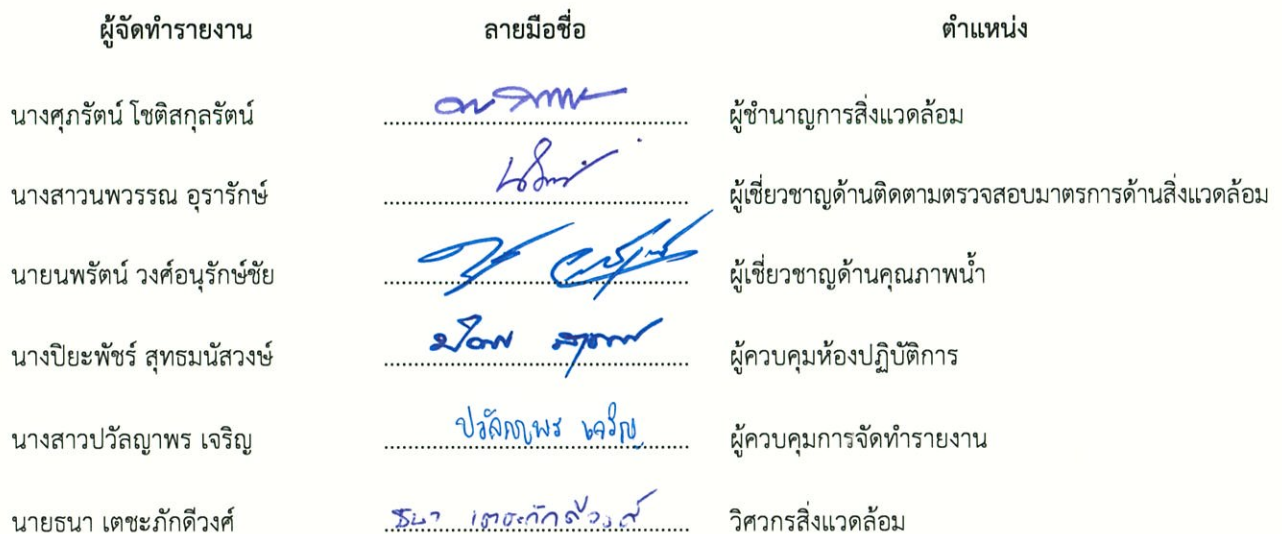 ผู้จัดทำรายงาน ลายมือชื่อ ตำแหน่ง
นางศุภรัตน์ โชติสกุลรัตน์ ผู้ชำนาญการสิ่งแวดล้อม
นางสาวนพวรรณ อุรารักษ์ ผู้เชี่ยวชาญด้านติดตามตรวจสอบมาตรการด้านสิ่งแวดล้อม
นายนพรัตน์ วงศ์อนุรักษ์ชัย ผู้เชี่ยวชาญด้านคุณภาพน้ำ
นางปิยะพัชร์ สุทธมนัสวงษ์ ผู้ควบคุมห้องปฏิบัติการ
นางสาวปวัลญาพร เจริญ ปวัลญาพร เจริญ ผู้ควบคุมการจัดทำรายงาน
นายธนา เตชะภักดีวงศ์ ธนา เตชะภักดีวงศ์ วิศวกรสิ่งแวดล้อม